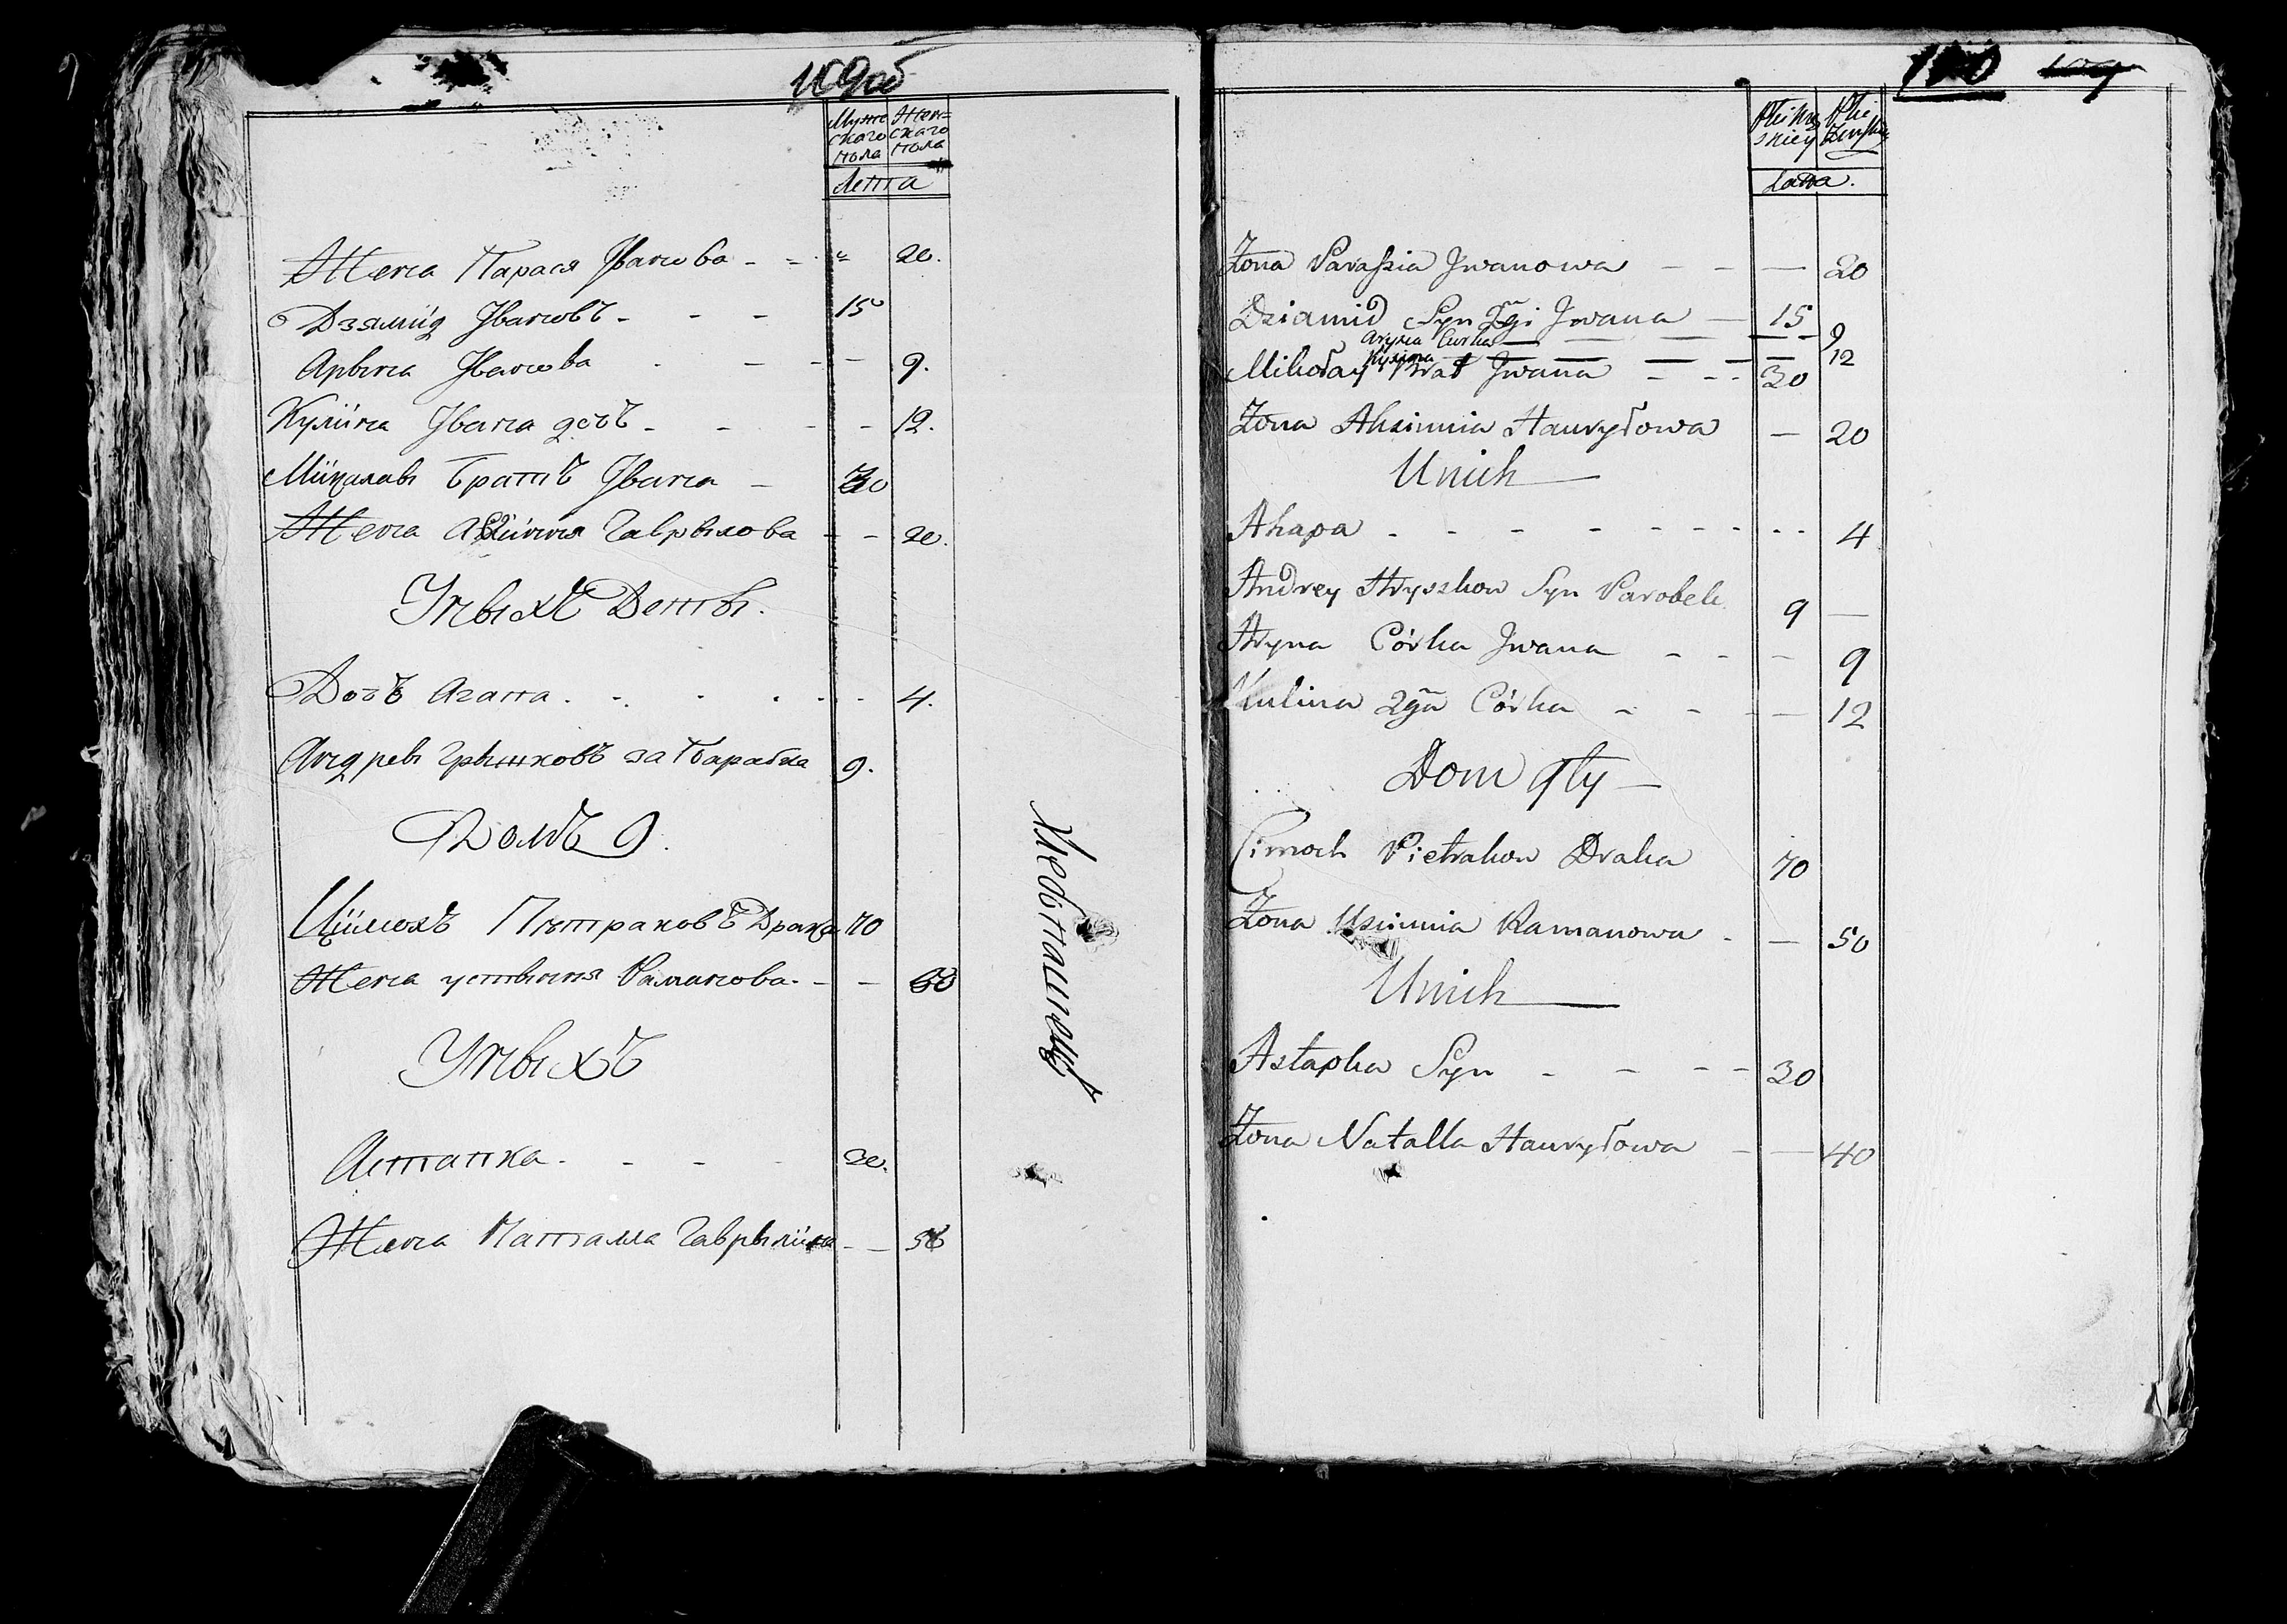 169об
Муже Жен=
скаго скаго
пола пола
Лета
Жена Парася Јванова - - " 20.
Дзямiд Јвановъ - - - 15
Арына Јванова - - - 9.
Кулiна Јвана дочъ - - - - 12.
Мiкалаы Братъ Јвана - 30
Жена Аксiння Гаврылова - - 20.
У ных Дети.
Дочъ Агапа - - - - 4.
Андреы Грышковъ за Парабка 9.
Домъ 9.
Цiмохъ Пятраковъ Драка 70
Жена устыння Рамановa - - 50
У ныхъ
Астапка - - - 30.
Жена Наталля Гаврылiна - - 50
170 109
Płci Mę Płci
skiey Żeńskiey
Lata.
Żona Paraszia Jwanowa - - — 20
Dziamid Syn 2gi Jwana — 15
Aryna Curka — — — — - 9
Kulina — — — — - — 12
Mikołay Brat Jwana - - - 30
Żona Aksinnia Hauryłowa — 20
U nich —
Ahapa - - - - - - - - - 4
Andrey Hryszkow Syn Parobek 9 —
Aryna Córka Jwana - - - 9
Kulina 2ga Córka - - - — 12
Dom 9ty —
Cimoch Pietrakow Draka 70
Żona Usciunia Ramanowa - — 50
U nich —
Astapka Syn - - - - 30
Żona Natalla Hauryłowa - — 40